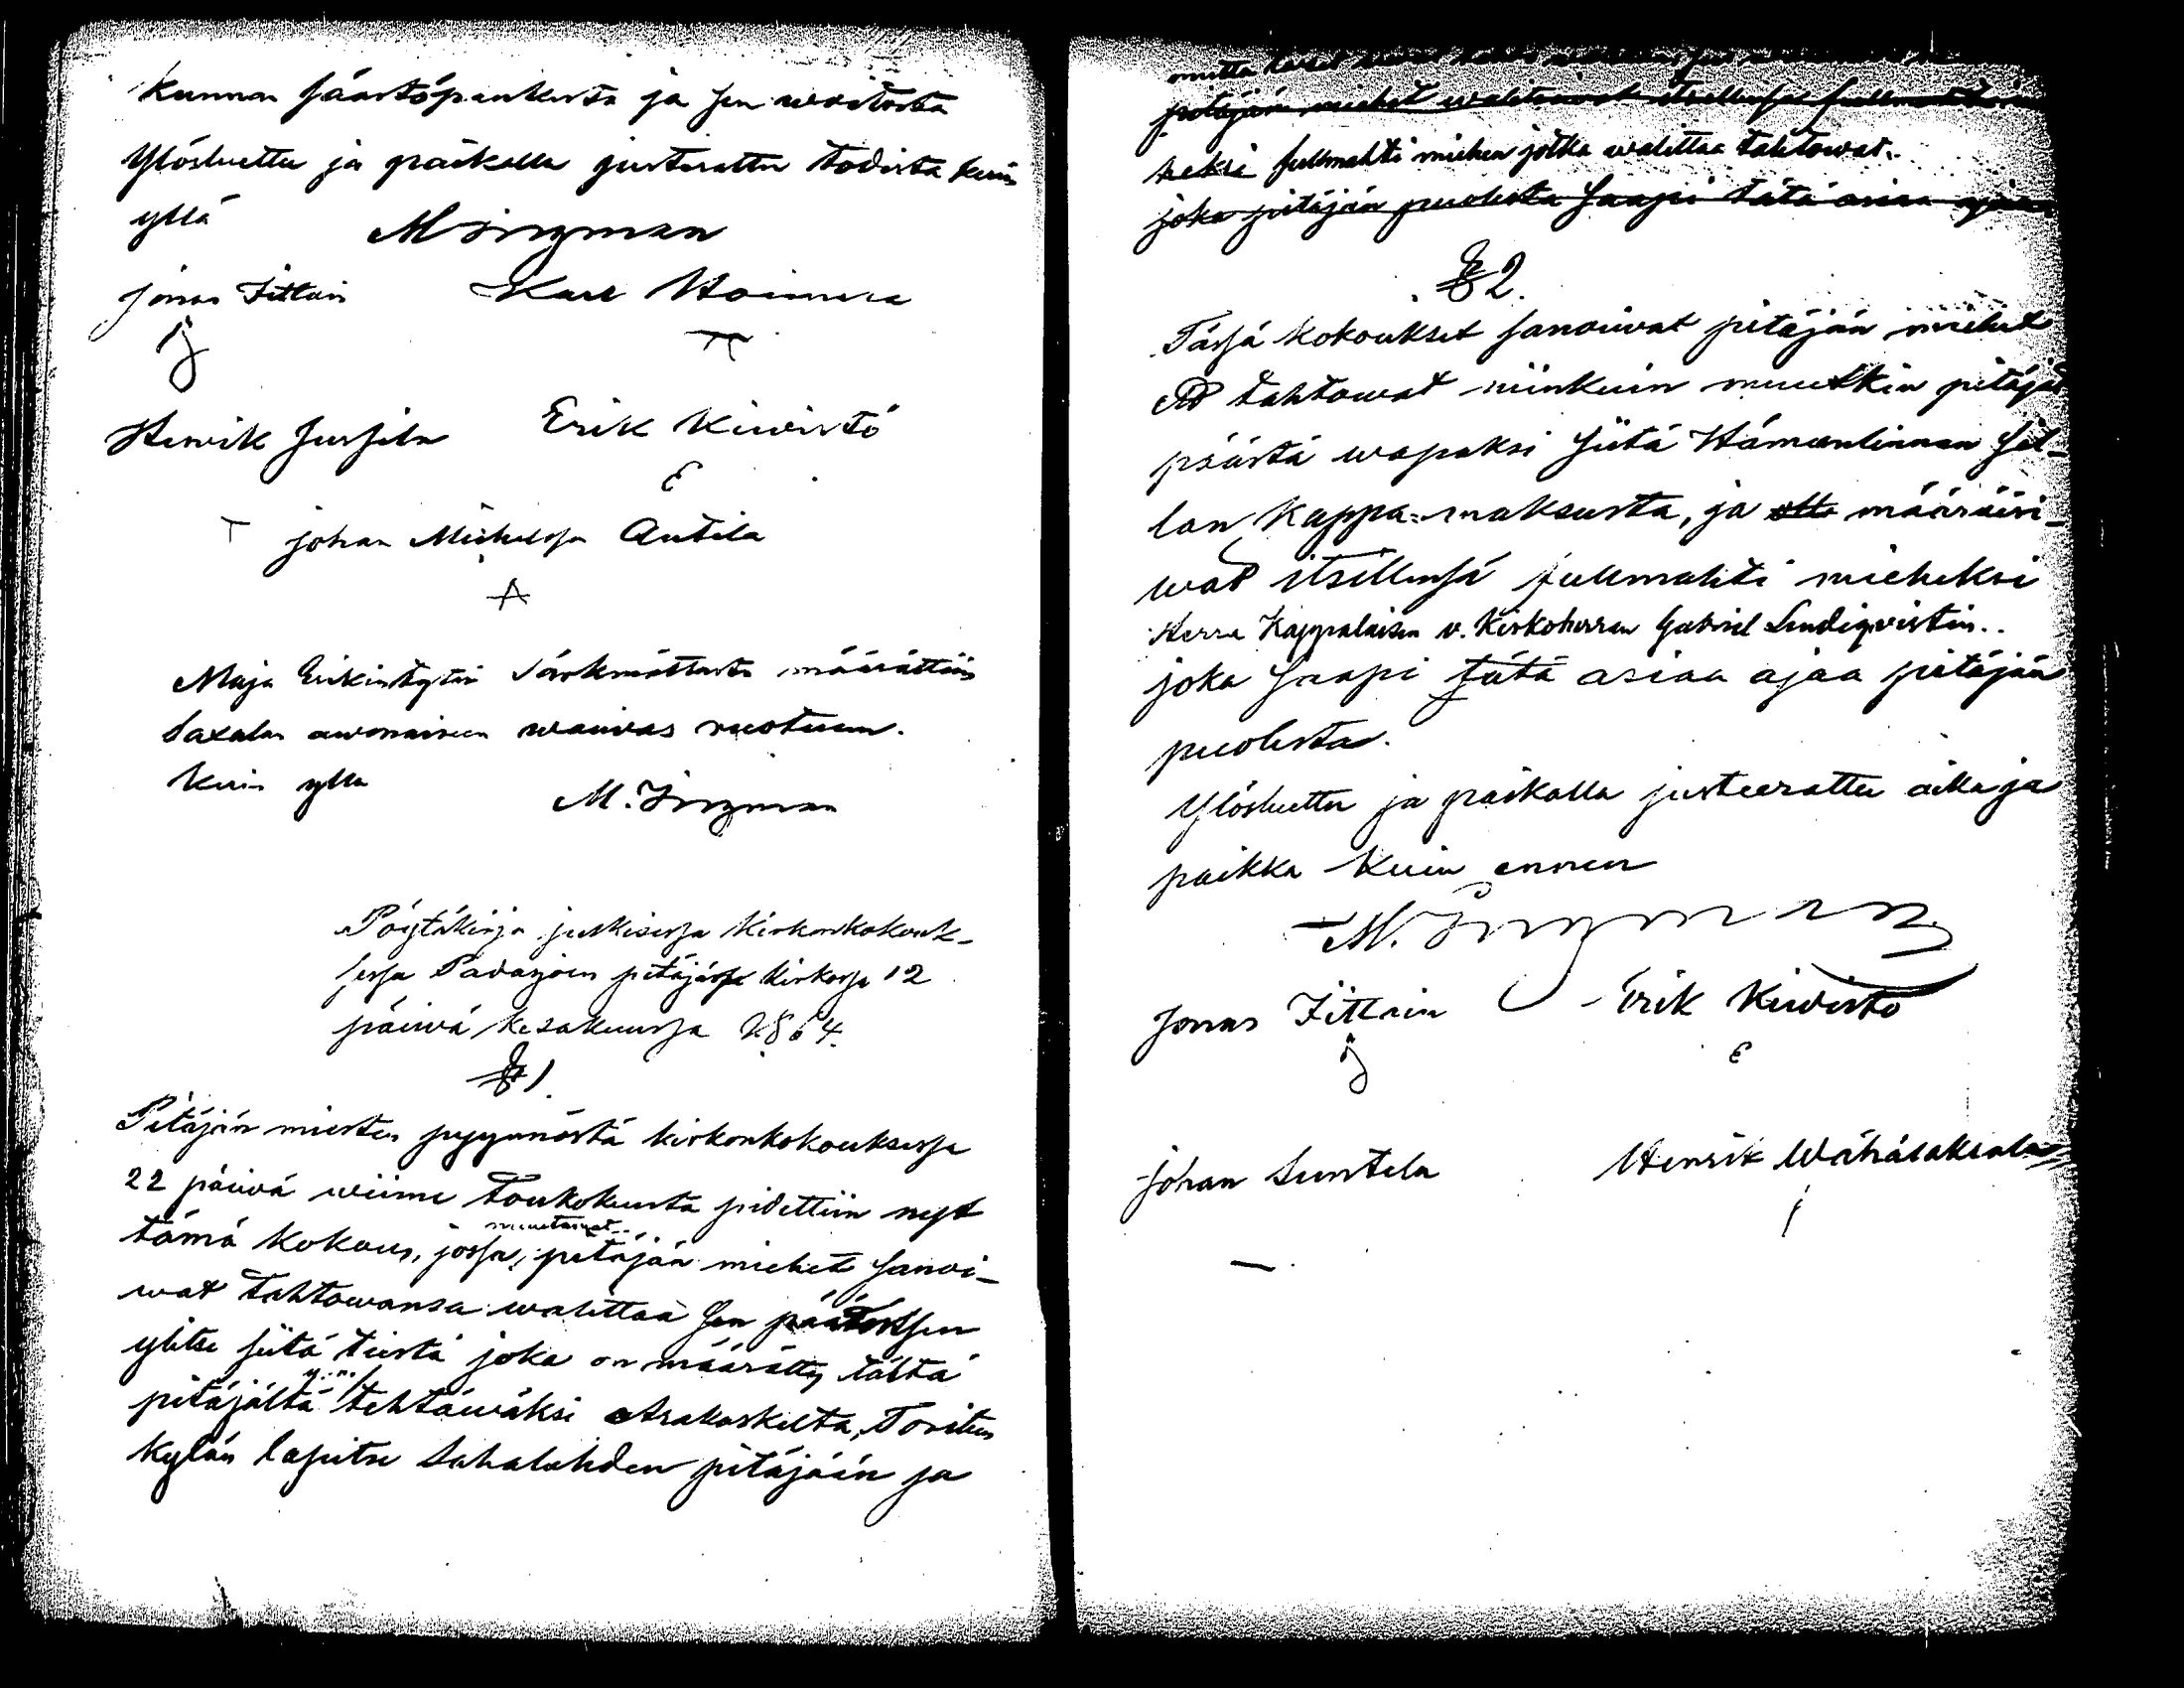 Kunnan säästöpankista ja sen
Ylösluettu ja paikalla justerattu todista kuin
yllä M Ingman
Jonas Iittain Karl Hoimera
Henrik Jussila Erik Kiwistö
E
Johan Michelsson Antila
A
Maja Erikintytär Särkmättästä määrättiin
Saxalan awonaiseen waiwas ruotuun.
Kuin yllä M. Ingman
Pöytäkirja julkisessa Kirkonkokouk-
sessa Padasjoen pitäjässä Kirkossa 12
päiwä Kesäkuussa 1864.
§ 1.
Pitäjän miesten pyynnöstä kirkonkokouksessa
22 päiwä wiime Toukokuuta pidettiin nyt
tämä kokous, jossa muutamat pitäjän miehet sanoi-
wat tahtowansa walittaa sen päätöksen
ylitse siitä tiestä joka on määrätty tältä
pitäjältä y.m. tehtäwäksi Arrakoskelta, Toritun
kylän lapitse Sahalahden pitäjään ja
mutta
pitäjän miehet walitsiwat itsellensä fullmahti
heksi fullmahti miehen jotka walittaa tahtowat.
joka pitäjän puolesta saapi tätä asiaa ajaa
§ 2.
Tässä Kokoukset sanoiwat pitäjän miehet
Että tahtowat niinkuin muutkin pitäjät
päästä wapaksi siitä Hämeenlinnan sil-
lan Kappa-maksusta, ja määräsi-
wät itsellensä fullmahti mieheksi
Herra Kappalaisen v. Kirkoherran Gabriel Lindeqvistin..
joka saapi tätä asiaa ajaa pitäjään
puolesta.
Ylösluettu ja paikalla justeerattu aika ja
paikka kuin ennen
M. Ingman
Jonas Iittain Erik Kiwistö
E
Johan Suntela Henrik Wähäsaksala